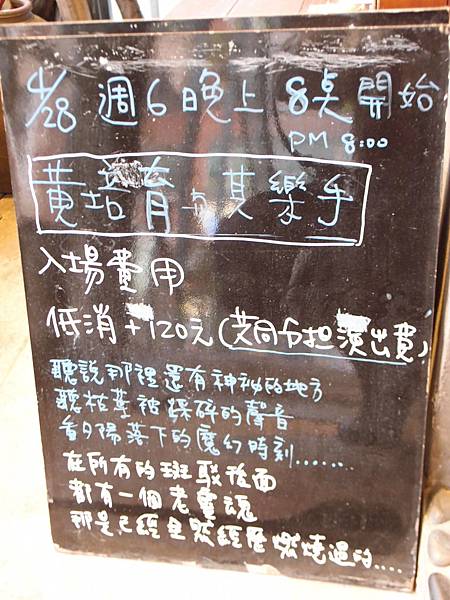 4/28 週6晚上 8點開始
PM 8:00
黃培育与其樂手
入場費用
低消+120元(共同分担演出費)
聽說那裡還有神祕的地方
聽枯葉被踩碎的聲音
看夕陽落下的魔幻時刻.......
在所有的斑駁後面
都有一個老靈魂
那是已經 經歷燃燒過的....